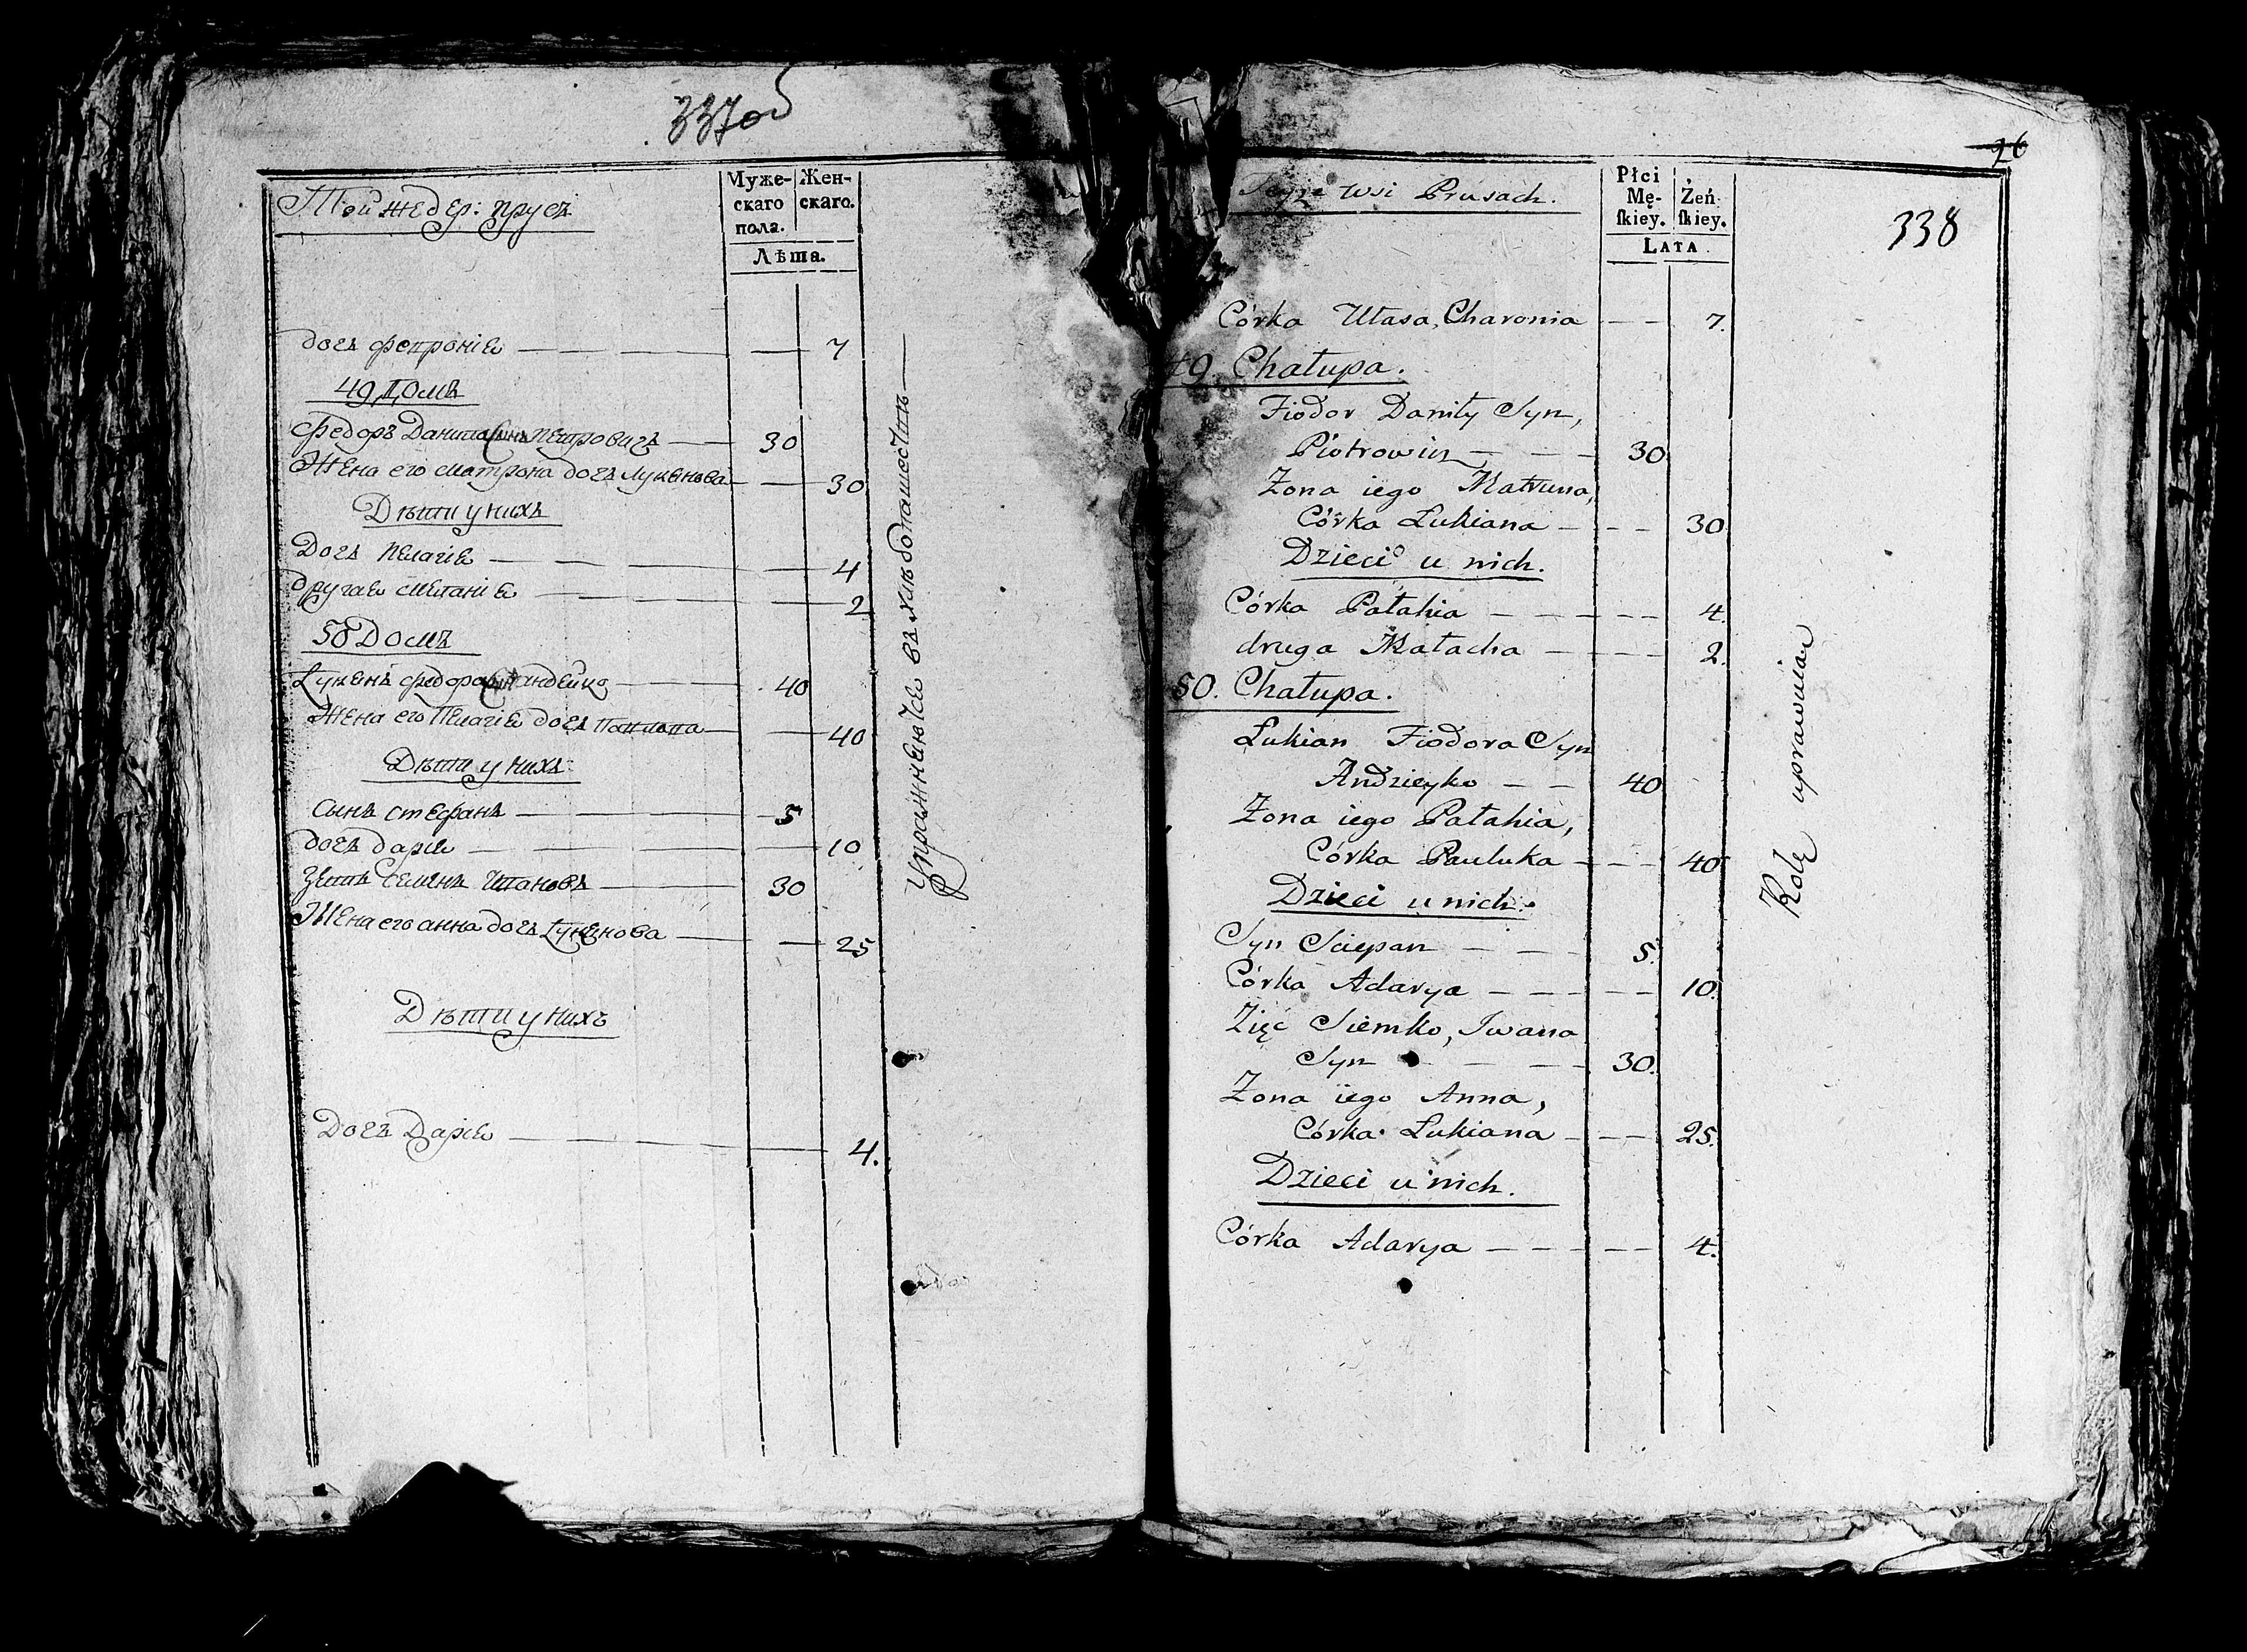 337об
Той же дер: прусъ
Муже-
скаго
пола.
Жен-
скаго.
Лѣта.
дочь фепронія — — — — 7
49 Домъ
Федоръ Данила Сынъ Петровичъ — 30
Жена его матрона дочь лукянова — — 30
Дѣти у нихъ
Дочь пелагія — — — — 4
другая меланія — — — 2
50 Домъ
Лукянъ федора Сынъ андейко — 40
Жена его Пелагія дочь павлова — — 40
Дѣти у нихъ
сынъ стефанъ — 5
дочь дарія — — — — 10
Зять Семенъ Ивановъ — 30
Жена его анна дочь Лукянова — — 25
Дѣти у нихъ
Дочь Дарія — — — 4.
Упражняются въ хлѣбопашествѣ —
26
338
Teyże wsi Prusach.
Płci
Mę-
ſkiey.
Żeń
ſkiey.
LATA
Córka Ułasa, Chavonia — — 7.
49. Chałupa.
Fiodor Daniły Syn,
Piotrowicz — — — 30
Żona iego Matruna,
Córka Łukiana — — — 30
Dzieci u nich.
Córka Pałahia — — — — 4.
druga Małacha — — — — 2.
50. Chałupa.
Łukian Fiodora Syn
Andzieyko — — 40
Żona iego Pałahia,
Córka Pauluka — — — 40
Dzieci u nich.
Syn Sciepan — — 5.
Córka Adarya — — — — 10.
Zięć Siemko, Iwana
Syn — — 30.
Żona iego Anna,
Córka Łukiana — — — 25.
Dzieci u nich.
Córka Adarya — — — — 4.
Rolę uprawnian